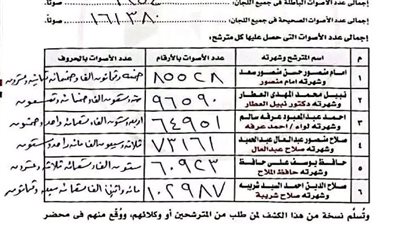 إجمالى عدد الأصوات الباطلة فى جميع اللجان: صوتاً.
إجمالى عدد الأصوات الصحيحة فى جميع اللجان: ١٦١٣٨٠ صوتاً.
إجمالى عدد الأصوات التى حصل عليها كل مترشح:
م اسم المترشح وشهرته عدد الأصوات بالأرقام عدد الأصوات بالحروف
١ امام منصور حسن منصور سعد وشهرته امام منصور ٨٥٥٢٨ خمسة وثمانون الفا وخمسمائة وثمانية وعشرون
٢ نبيل محمد المهدى العطار وشهرته دكتور نبيل العطار ٩٦٥٩٠ ستة وتسعون الفا وخمسمائة وتسعون
٣ احمد عبدالمعبود عرفه سالم وشهرته لواء / احمد عرفه ٦٤٩٥١ اربعة وستون الفا وتسعمائة واحد وخمسون
٤ صلاح منصور عبدالعال عبدالعيد وشهرته صلاح عبدالعال ٧٣١٦١ ثلاثة وسبعون الفا مائة واحد وستون
٥ حافظ يوسف على حافظ وشهرته حافظ الملاح ٦٠٩٢٣ ستون الفا وتسعمائة ثلاثة وعشرون
٦ صلاح الدين احمد السيد شريبه وشهرته صلاح شريبة ١٠٢٩٨٧ مائة واثنين الفا تسعمائة سبعة وثمانون
وتُسلّم نسخة من هذا الكشف لمن طلب من المترشحين أو وكلائهم، ووُقّع منهم فى محضر